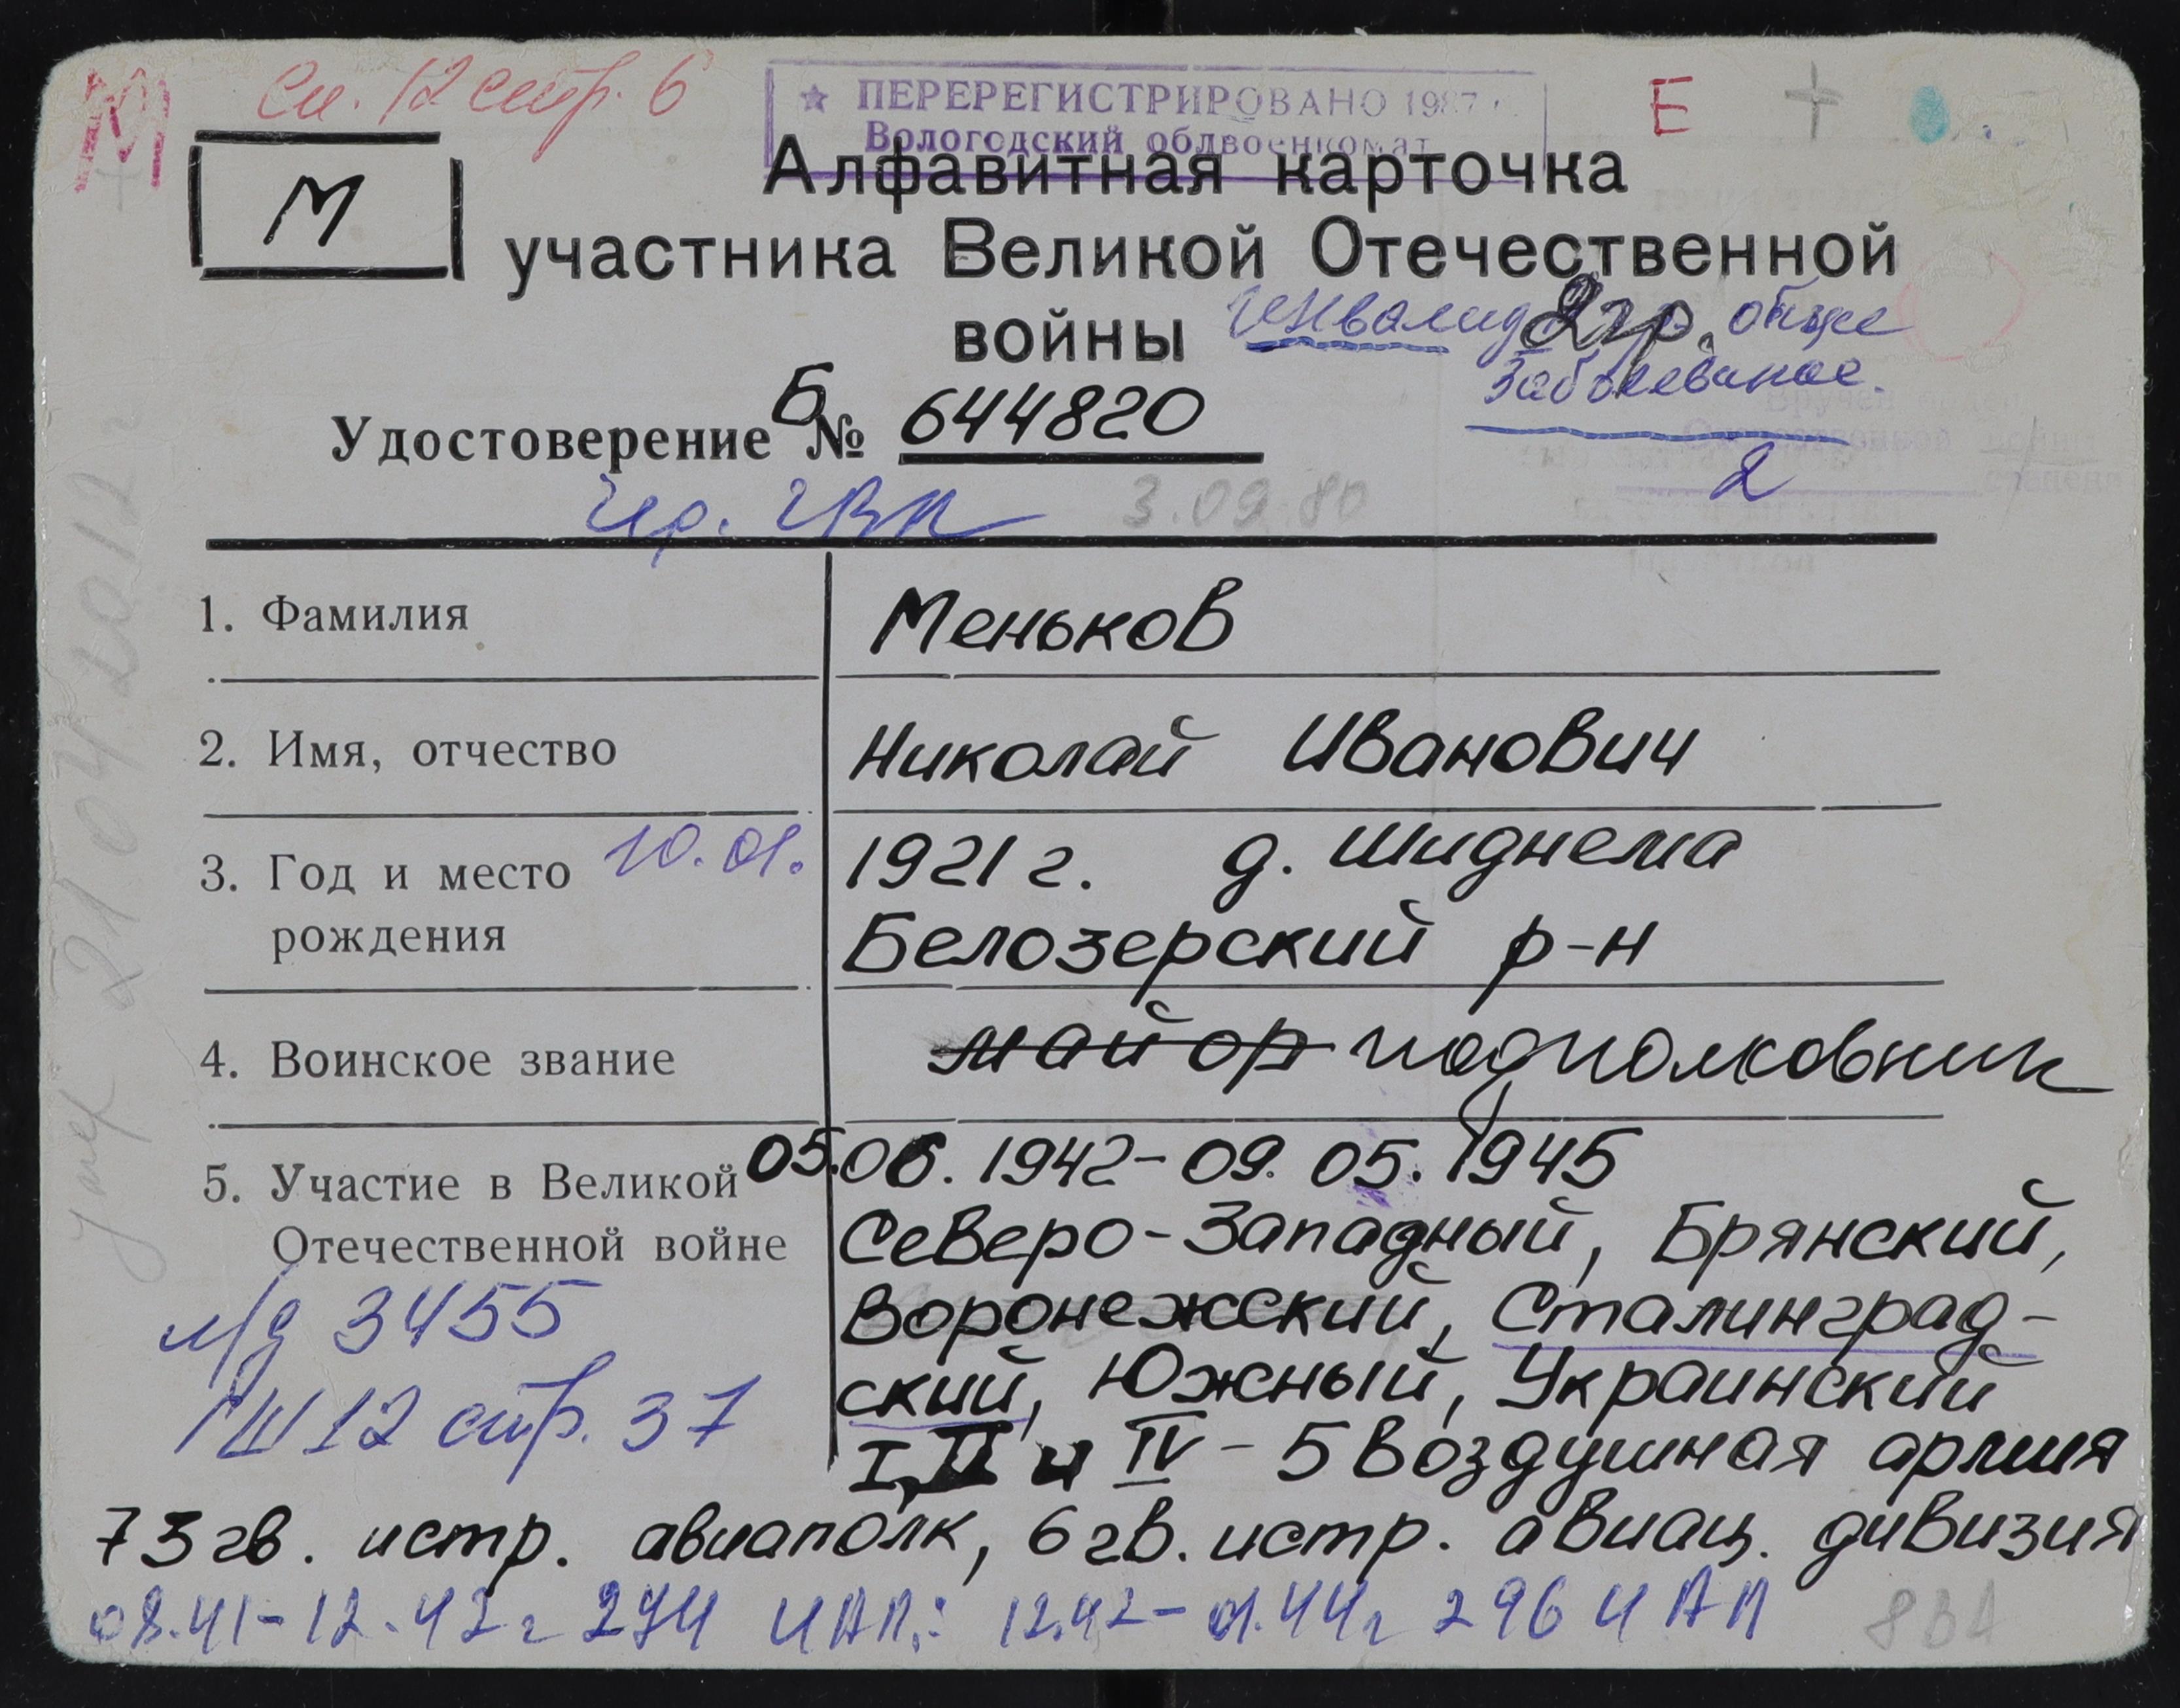 М
Сп. 12 стр. 6
ПЕРЕРЕГИСТРИРОВАНО 1987 г.
Вологодский облвоенкомат
Е
+
М
Алфавитная карточка
участника Великой Отечественной
войны
инвалид 2 гр. общее
заболевание.
Удостоверение Б № 644820
2
3.09.80
1. Фамилия
Меньков
2. Имя, отчество
Николай Иванович
3. Год и место рождения
10.01.
1921 г. д. Шиднема
Белозерский р-н
4. Воинское звание
майор подполковник
5. Участие в Великой
Отечественной войне
05.06.1942-09.05.1945
Северо-Западный, Брянский,
Воронежский, Сталинград-
ский, Южный, Украинский
I, II и IV - 5 Воздушная армия
73 гв. истр. авиаполк, 6 гв. истр. авиац. дивизия
м/д 3455
ГШ 12 стр. 37
08.41-12.42 г 294 ИАП: 12.42-01.44 г 296 ИАП
21 04 2012